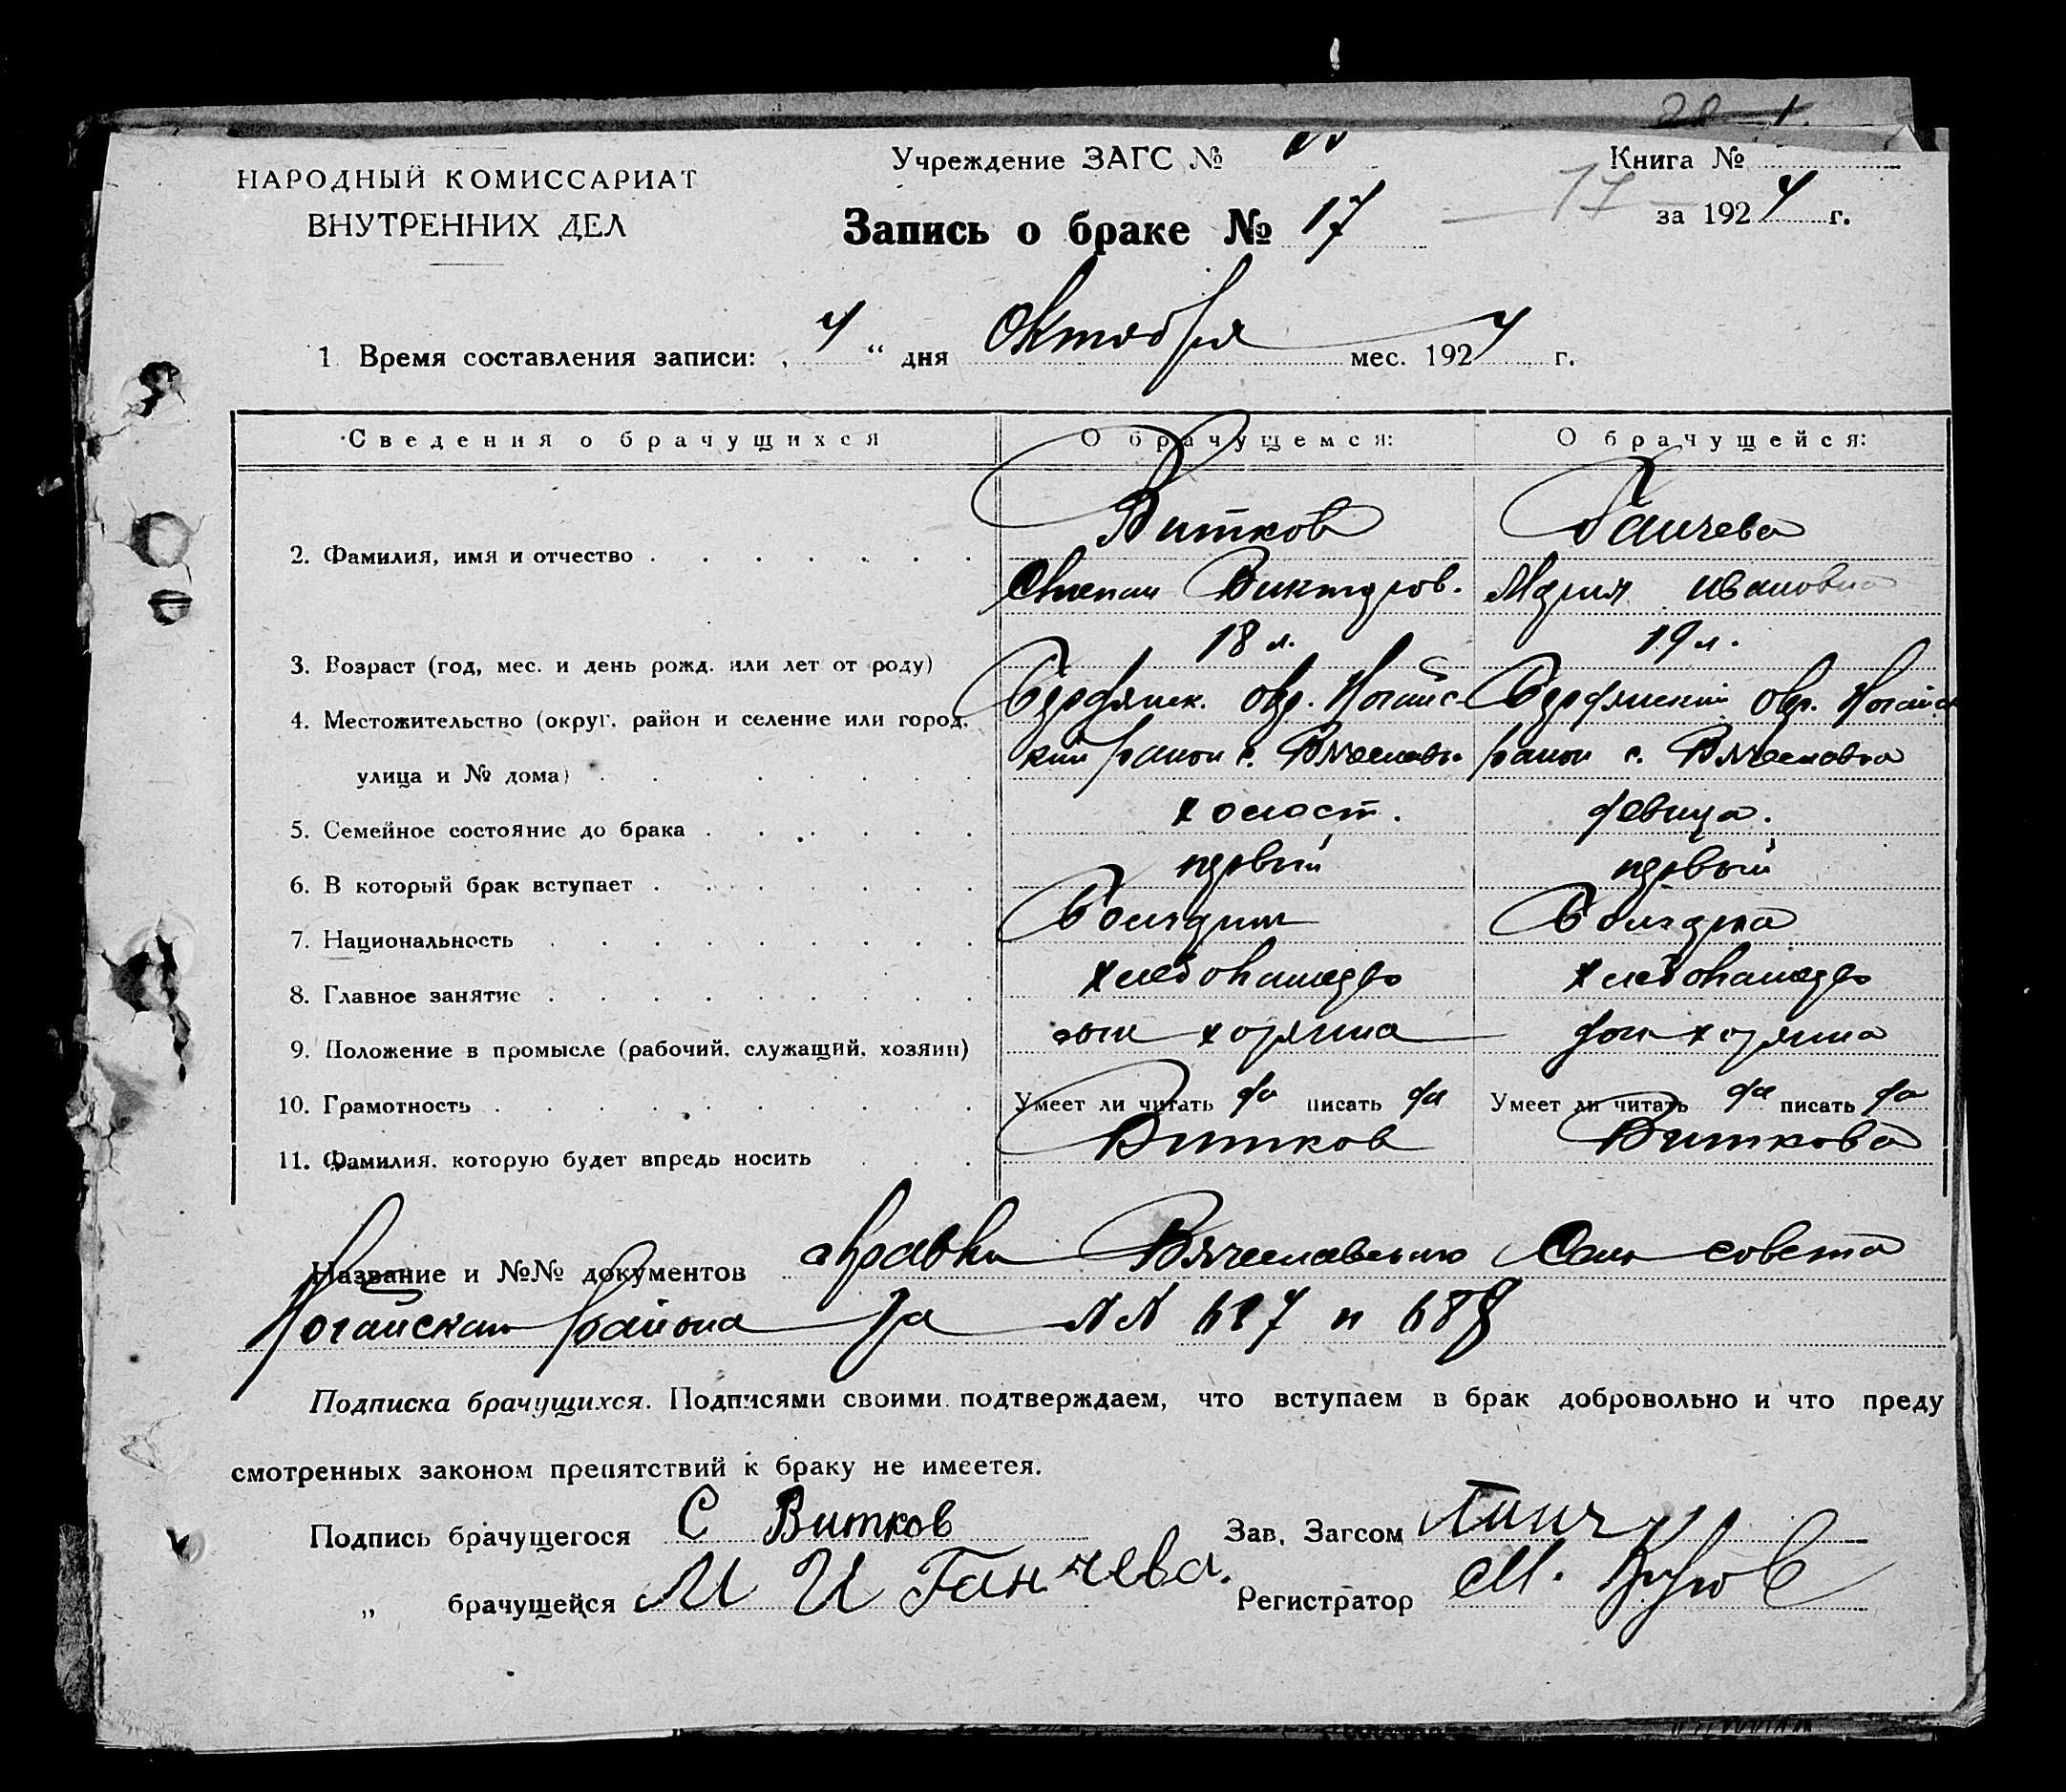 НАРОДНЫЙ КОМИССАРИАТ
ВНУТРЕННИХ ДЕЛ
Учреждение ЗАГС №
Книга №
Запись о браке № 17
17
за 1924 г.
1 Время составления записи: „ 4 “ дня Октября мес. 1924 г.
Сведения о брачущихся О брачущемся: О брачущейся:
2. Фамилия, имя и отчество Витков Ганчева
Степан Викторов. Мария Ивановна
3. Возраст (год, мес. и день рожд. или лет от роду) 18 л. 19 л.
4. Местожительство (округ, район и селение или город, Бердянск. Окр. Ногайс- Бердянский Окр. Ногайск
улица и № дома) кий район с. Вячеславк. район с. Вячеславка
5. Семейное состояние до брака холост. девица.
6. В который брак вступает первый первый
7. Национальность Болгарин Болгарка
8. Главное занятие хлебопашество хлебопашество
9. Положение в промысле (рабочий, служащий, хозяин) сын хозяина дочь хозяина
10. Грамотность Умеет ли читать да писать да Умеет ли читать да писать да
11. Фамилия, которую будет впредь носить Витков Виткова
Название и №№ документов справки Вячеславского Сель совета
Ногайского района за №№ и
Подписка брачущихся. Подписями своими подтверждаем, что вступаем в брак добровольно и что преду
смотренных законом препятствий к браку не имеется.
Подпись брачущегося С Витков Зав. Загсом
„ брачущейся М И Ганчева. Регистратор М.